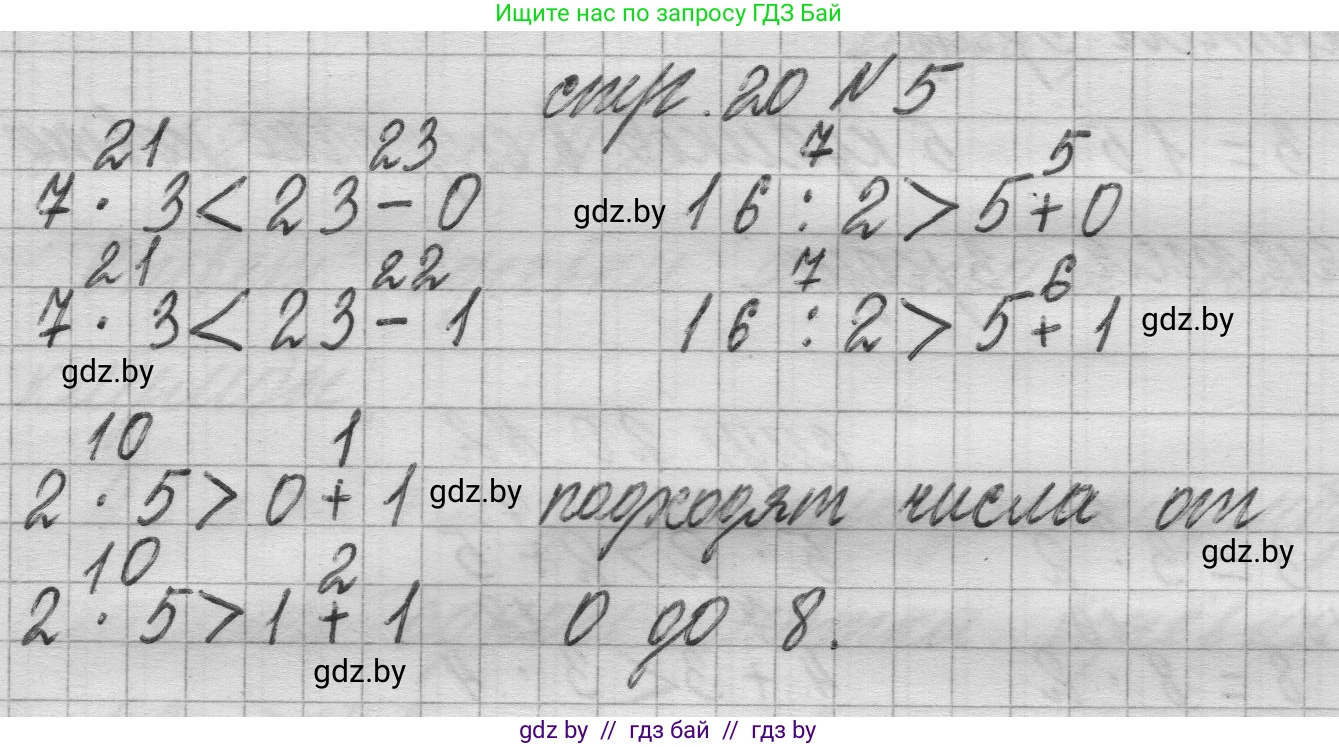 Ищите нас по запросу ГДЗ Бай
стр. 20 № 5
21 23 7 5
7 · 3 < 23 - 0 gdz.by 16 : 2 > 5 + 0
21 22 7 6
7 · 3 < 23 - 1 16 : 2 > 5 + 1 gdz.by
gdz.by
10 1
2 · 5 > 0 + 1 gdz.by подходят числа от
gdz.by
10 2
2 · 5 > 1 + 1 0 до 8.
gdz.by
gdz by // гдз бай // гдз by